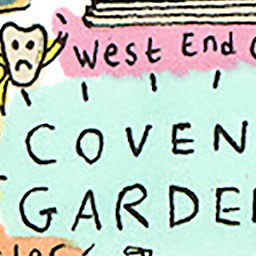 West End
COVEN
GARDE